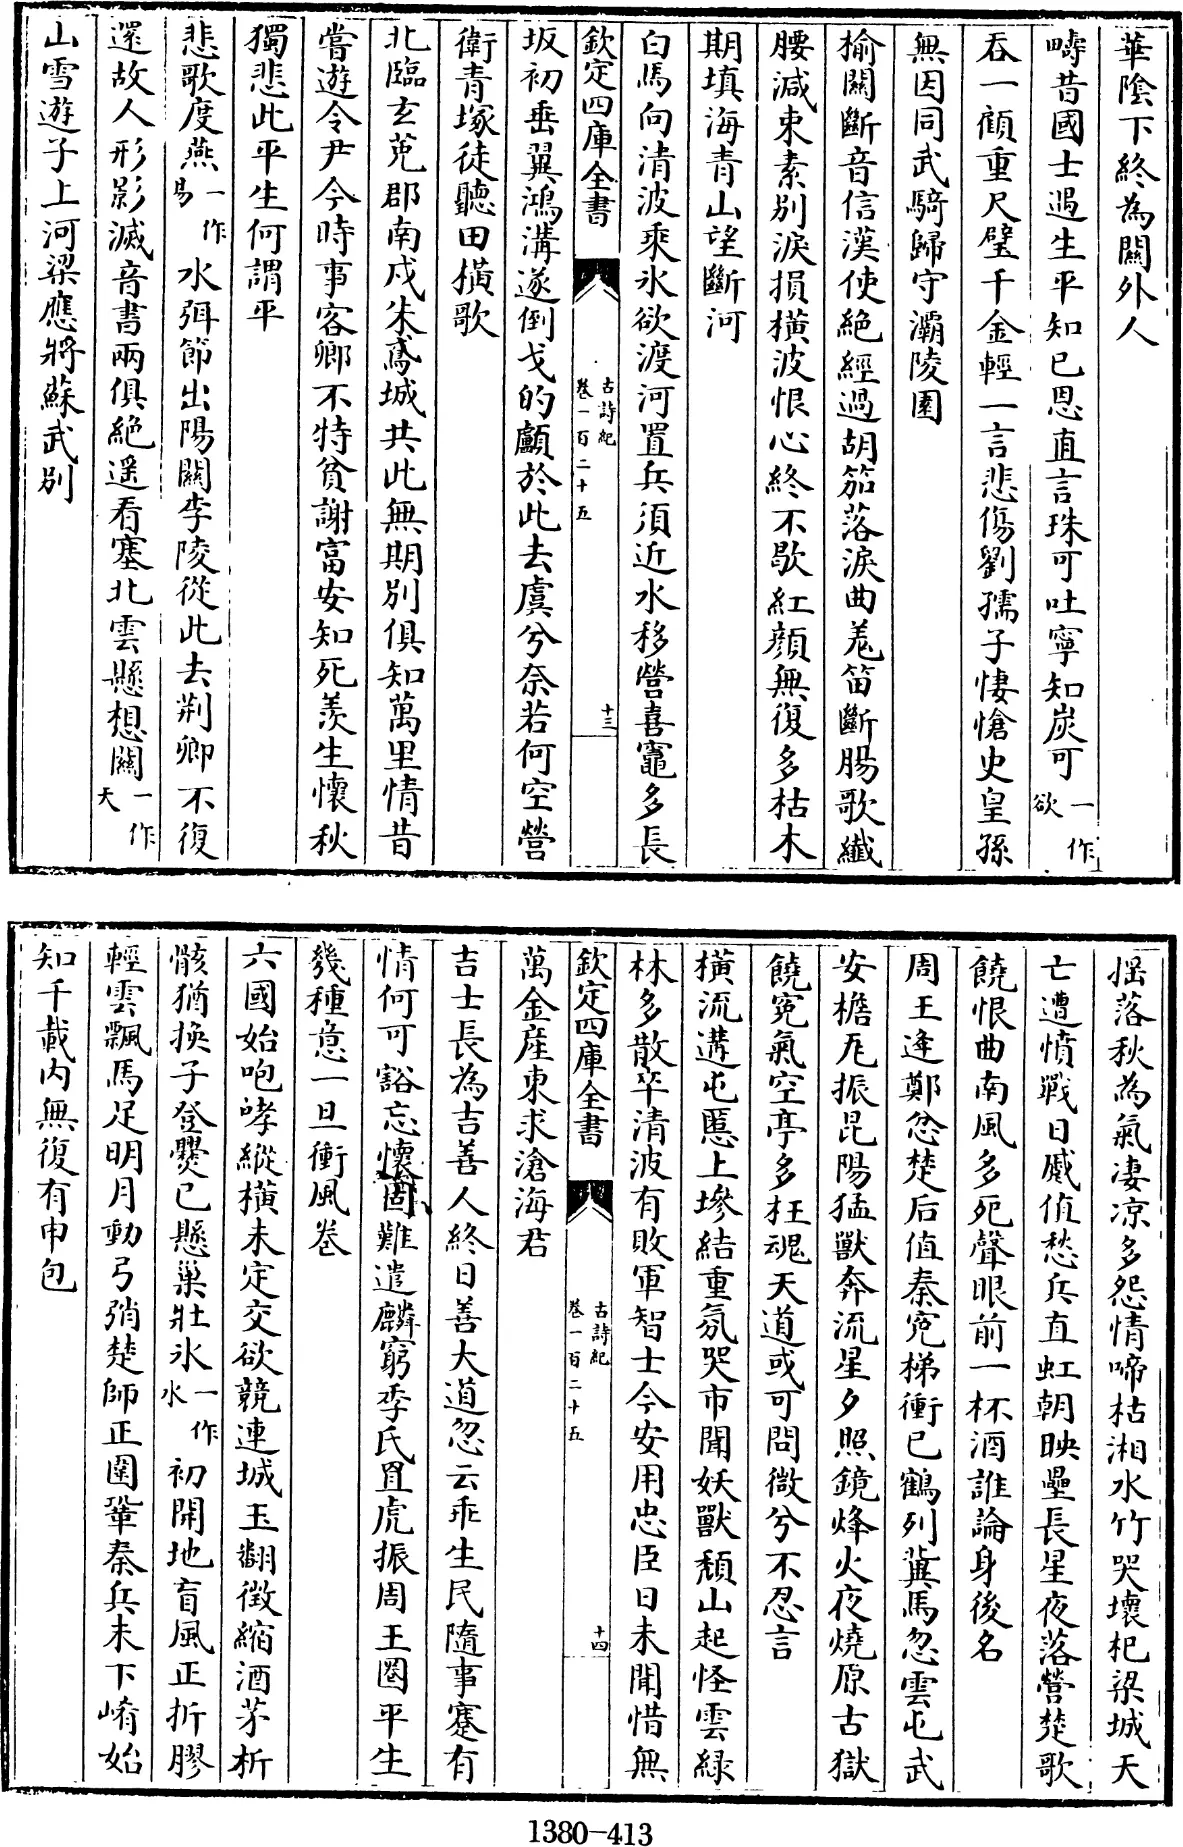 華陰下終為關外人
疇昔國士遇生平知己恩直言珠可吐寧知炭可一作欲
吞一顧重尺璧千金輕一言悲傷劉孺子悽愴史皇孫
無因同武騎歸守灞陵園
榆關斷音信漢使絶經過胡笳落淚曲羌笛斷腸歌纖
腰減束素别淚損横波恨心終不歇紅顏無復多枯木
期填海青山望斷河
白馬向清波乘氷欲渡河置兵須近水移營喜竈多長
欽定四庫全書
古詩紀
卷一百二十五
十三
坂初垂翼鴻溝遂倒戈的顱於此去虞兮奈若何空營
衛青塚徒聽田横歌
北臨玄菟郡南戍朱鳶城共此無期别俱知萬里情昔
嘗遊令尹今時事客卿不特貧謝富安知死羨生懷秋
獨悲此平生何謂平
悲歌度燕一作易水弭節出陽關李陵從此去荆卿不復
還故人形影滅音書兩俱絶遥看塞北雲懸想關一作天
山雪遊子上河梁應將蘇武别
揺落秋為氣凄凉多怨情啼枯湘水竹哭壞杞梁城天
亡遭憤戰日蹙值愁兵直虹朝映壘長星夜落營楚歌
饒恨曲南風多死聲眼前一杯酒誰論身後名
周王逢鄭忿楚后值秦寃梯衝已鶴列冀馬忽雲屯武
安檐瓦振昆陽猛獸奔流星夕照鏡烽火夜燒原古獄
饒寃氣空亭多枉魂天道或可問微兮不忍言
横流遘屯慝上墋結重氛哭市聞妖獸頹山起怪雲緑
林多散卒清波有敗軍智士今安用忠臣日未聞惜無
欽定四庫全書
古詩紀
卷一百二十五
十四
萬金産東求滄海君
吉士長為吉善人終日善大道忽云乖生民隨事蹇有
情何可豁忘懷固難遣麟窮季氏罝虎振周王圈平生
幾種意一旦衝風卷
六國始咆哮縱横未定交欲競連城玉翻徴縮酒茅析
骸猶換子登爨已懸巢壯氷一作水初開地盲風正折膠
輕雲飄馬足明月動弓弰楚師正圍鞏秦兵未下崤始
知千載内無復有申包
1380-413